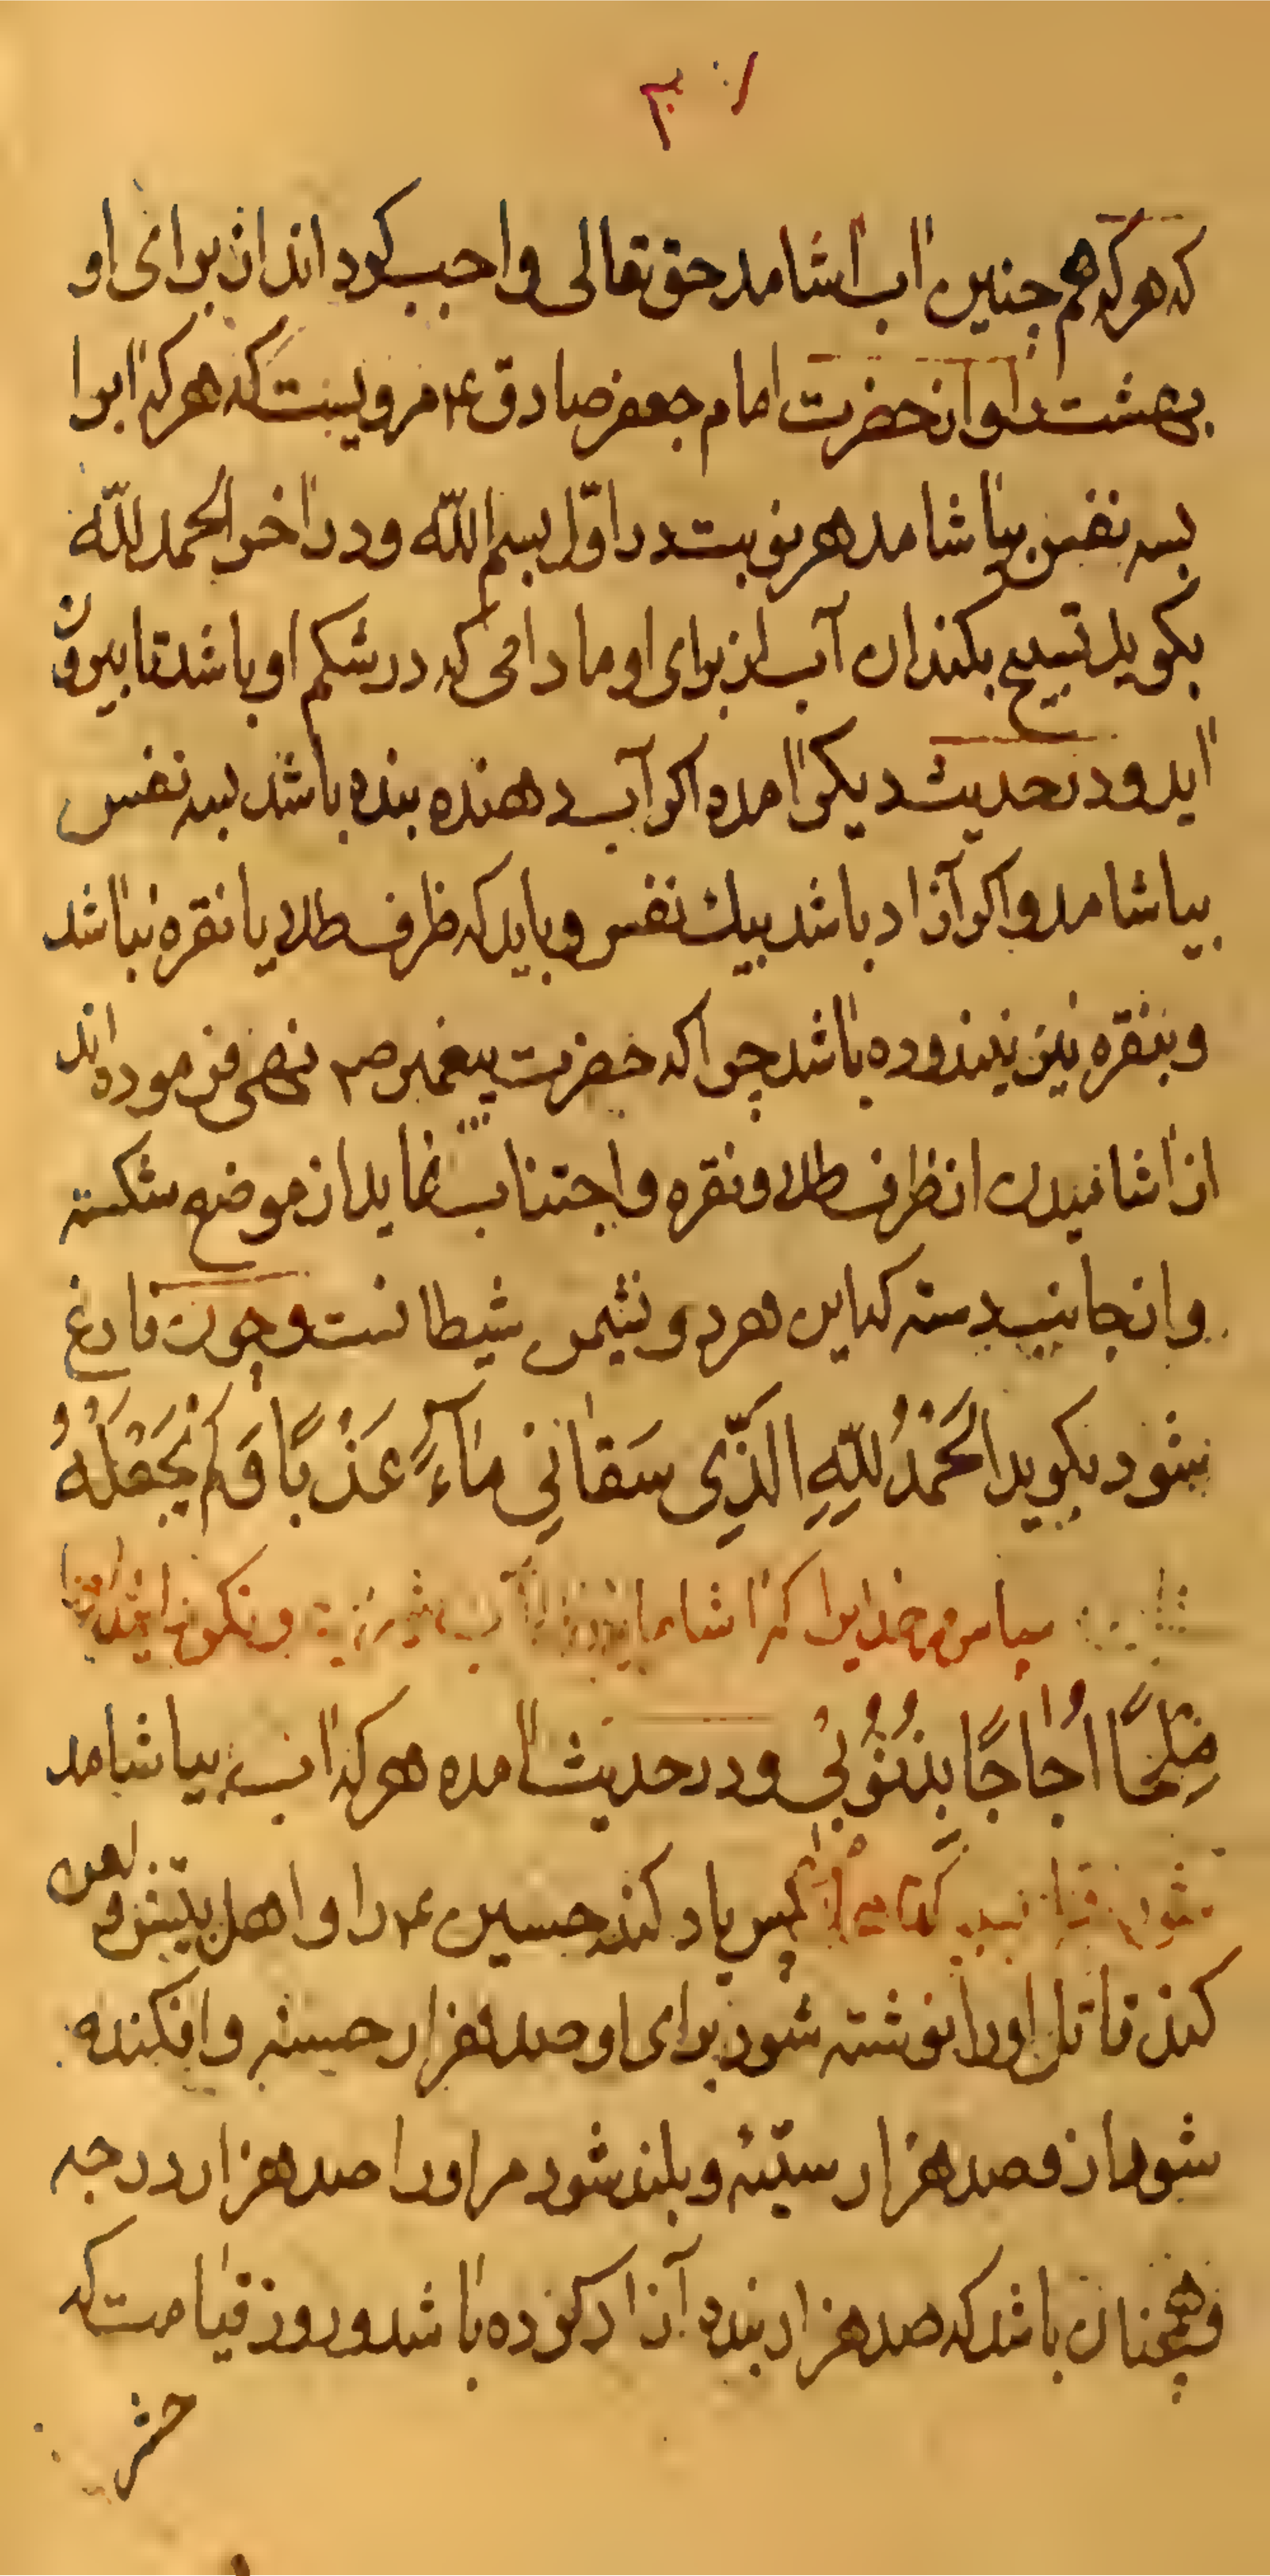 که هر که هم جنین اب اشامد حق تعالی واجب کرداند ان برای او
بهشت را و از حضرت امام جعفر صادق ع مرویست که هر که ابرا
بسه نفس بیاشامد هر نوبت در اوّل بسم اللّه و در اخر الحمد للّه
بکوید تسبیح بکند ان آب از برای او مادامی که در شکم او باشد تا بیرون
اید و در حدیث دیکر امده اکر آب دهنده بنده باشد بسه نفس
بیاشامد و اکر آزاد باشد بیك نفس و باید که ظرف طلا یا نقره نباشد
و بنقره نیز نیندوده باشد چرا که حضرت پیغمبر ص نهی فرموده اند
از اشامیدن از ظرف طلا و نقره و اجتناب نماید از موضع شکسته
و از جانب دسته که این هر دو نشیمن شیطانست و چون فارغ
بشود بکوید اَلحَمْدُ لِلّهِ الَّذِی سَقانِی ماءً عَذْبًا وَلَم یَجْعَلْهُ
سپاس مر خدایرا که اشامانید آب و نکردانید
مِلْحًا اُجاجًا بِذُنُوْبِی و در حدیث امده هر که اب بیاشامد
پس یاد کند حسین ع را و اهل بیتش و لعن
کند قاتل او را نوشته شود برای او صد هزار حسنه و افکنده
شود از و صد هزار سیّئه و بلند شود مر او را صد هزار درجه
و همچنان باشد که صد هزار بنده آزاد کرده باشد و روز قیامت که
حشر